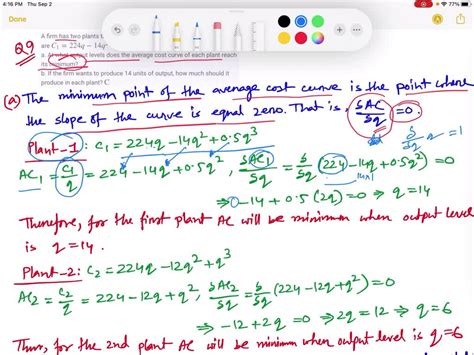 4:16 PM Thu Sep 2
77%
Done
29
A firm has two plants t
are C₁ = 224q − 14q²
a. At what output levels does the average cost curve of each plant reach
its minimum?
b. If the firm wants to produce 14 units of output, how much should it
produce in each plant? C
(a) The minimum point of the average cost curve is the point where
the slope of the curve is equal zero. That is, δAC/δq = 0.
Plant-1: C₁ = 224q − 14q² + 0.5q³
δ/δq = 1
AC₁ = C₁/q = 224 − 14q + 0.5q², δAC₁/δq = δ/δq (224 − 14q + 0.5q²) = 0
14×1
⇒ 0 − 14 + 0.5(2q) = 0 ⇒ q = 14
Therefore, for the first plant AC will be minimum when output level
is q = 14.
Plant-2: C₂ = 224q − 12q² + q³
AC₂ = C₂/q = 224 − 12q + q², δAC₂/δq = δ/δq (224 − 12q + q²) = 0
⇒ −12 + 2q = 0 ⇒ 2q = 12 ⇒ q = 6
Thus, for the 2nd plant AC will be minimum when output level is q = 6